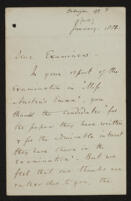 January, 188
Dear Examiner
In your report of the
Examination in "Miss
Austen's Emma", you
thank the candidates for
the papers they have written
& for the admirable interest
they have shown in the
examination. But we
feel that our thanks are
rather due to you, the